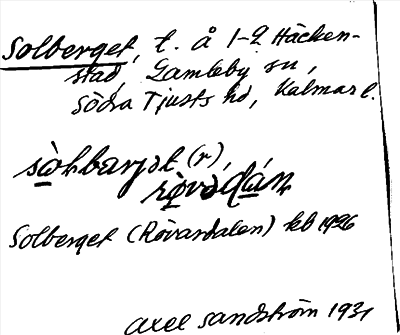 Solberget, t. å 1-2 Häcken-
stad, Gamleby sn,
Södra Tjusts hd, Kalmar l.
sòlbarjət (r),
rövədáln
Solberget (Rövardalen) kb 1926
Axel Sandström 1931